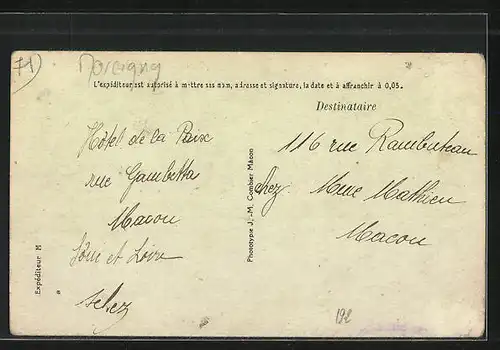 71
Marcigny
L'expéditeur est autorisé à mettre ses nom, adresse et signature, la date et à affranchir à 0,05.
Destinataire
Hôtel de la Paix
rue Gambetta
Macon
Saône et Loire
Expéditeur M
Phototypie J.-M. Combier Mâcon
116 rue Rambuteau
chez Mme Mathieu
Macon
192